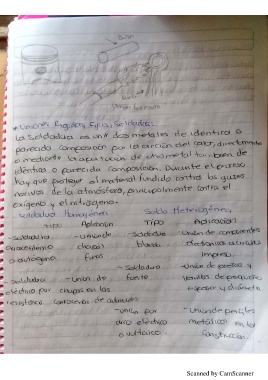 • Uniones Rígidas Fijas Soldadas:
La Soldadura es unir dos metales de identica o
parecida composición por la acción del calor, directamente
o mediante la aportación de otro metal tambien de
idéntica o parecida composición. Durante el proceso
hay que proteger al material fundido contra los gases
nocivos de la atmósfera, principalmente contra el
oxígeno y el nitrógeno.
Soldadura Homogénea Solda Heterogénea
Tipo Aplicación Tipo Aplicación
- Soldadura - union de - Soldadura - Union de componentes
chapas blanda electronicos a circuitos
o autogena finas impresos
- Soldadura - Union de
- Soldadura - Union de piezas y
fuerte de pequeño
eléctrica por chapas en las espesor y diámetro
resistencia
- union por - Union de perfiles
arco eléctrico metálicos en la
construccion.
Scanned by CamScanner